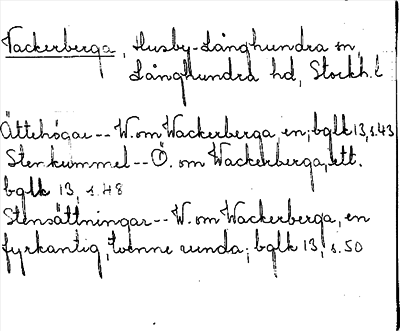 Vackerberga, Husby-Långhundra sn,
Långhundra hd, Stockh. l
Ättehögar -- W. om Wackerberga, en; bglk 13, s. 43
Stenkummel -- Ö. om Wackerberga, ett.
bglk 13, s. 48
Stensättningar -- W. om Wackerberga, en
fyrkantig, tvenne runda; bglk 13, s. 50